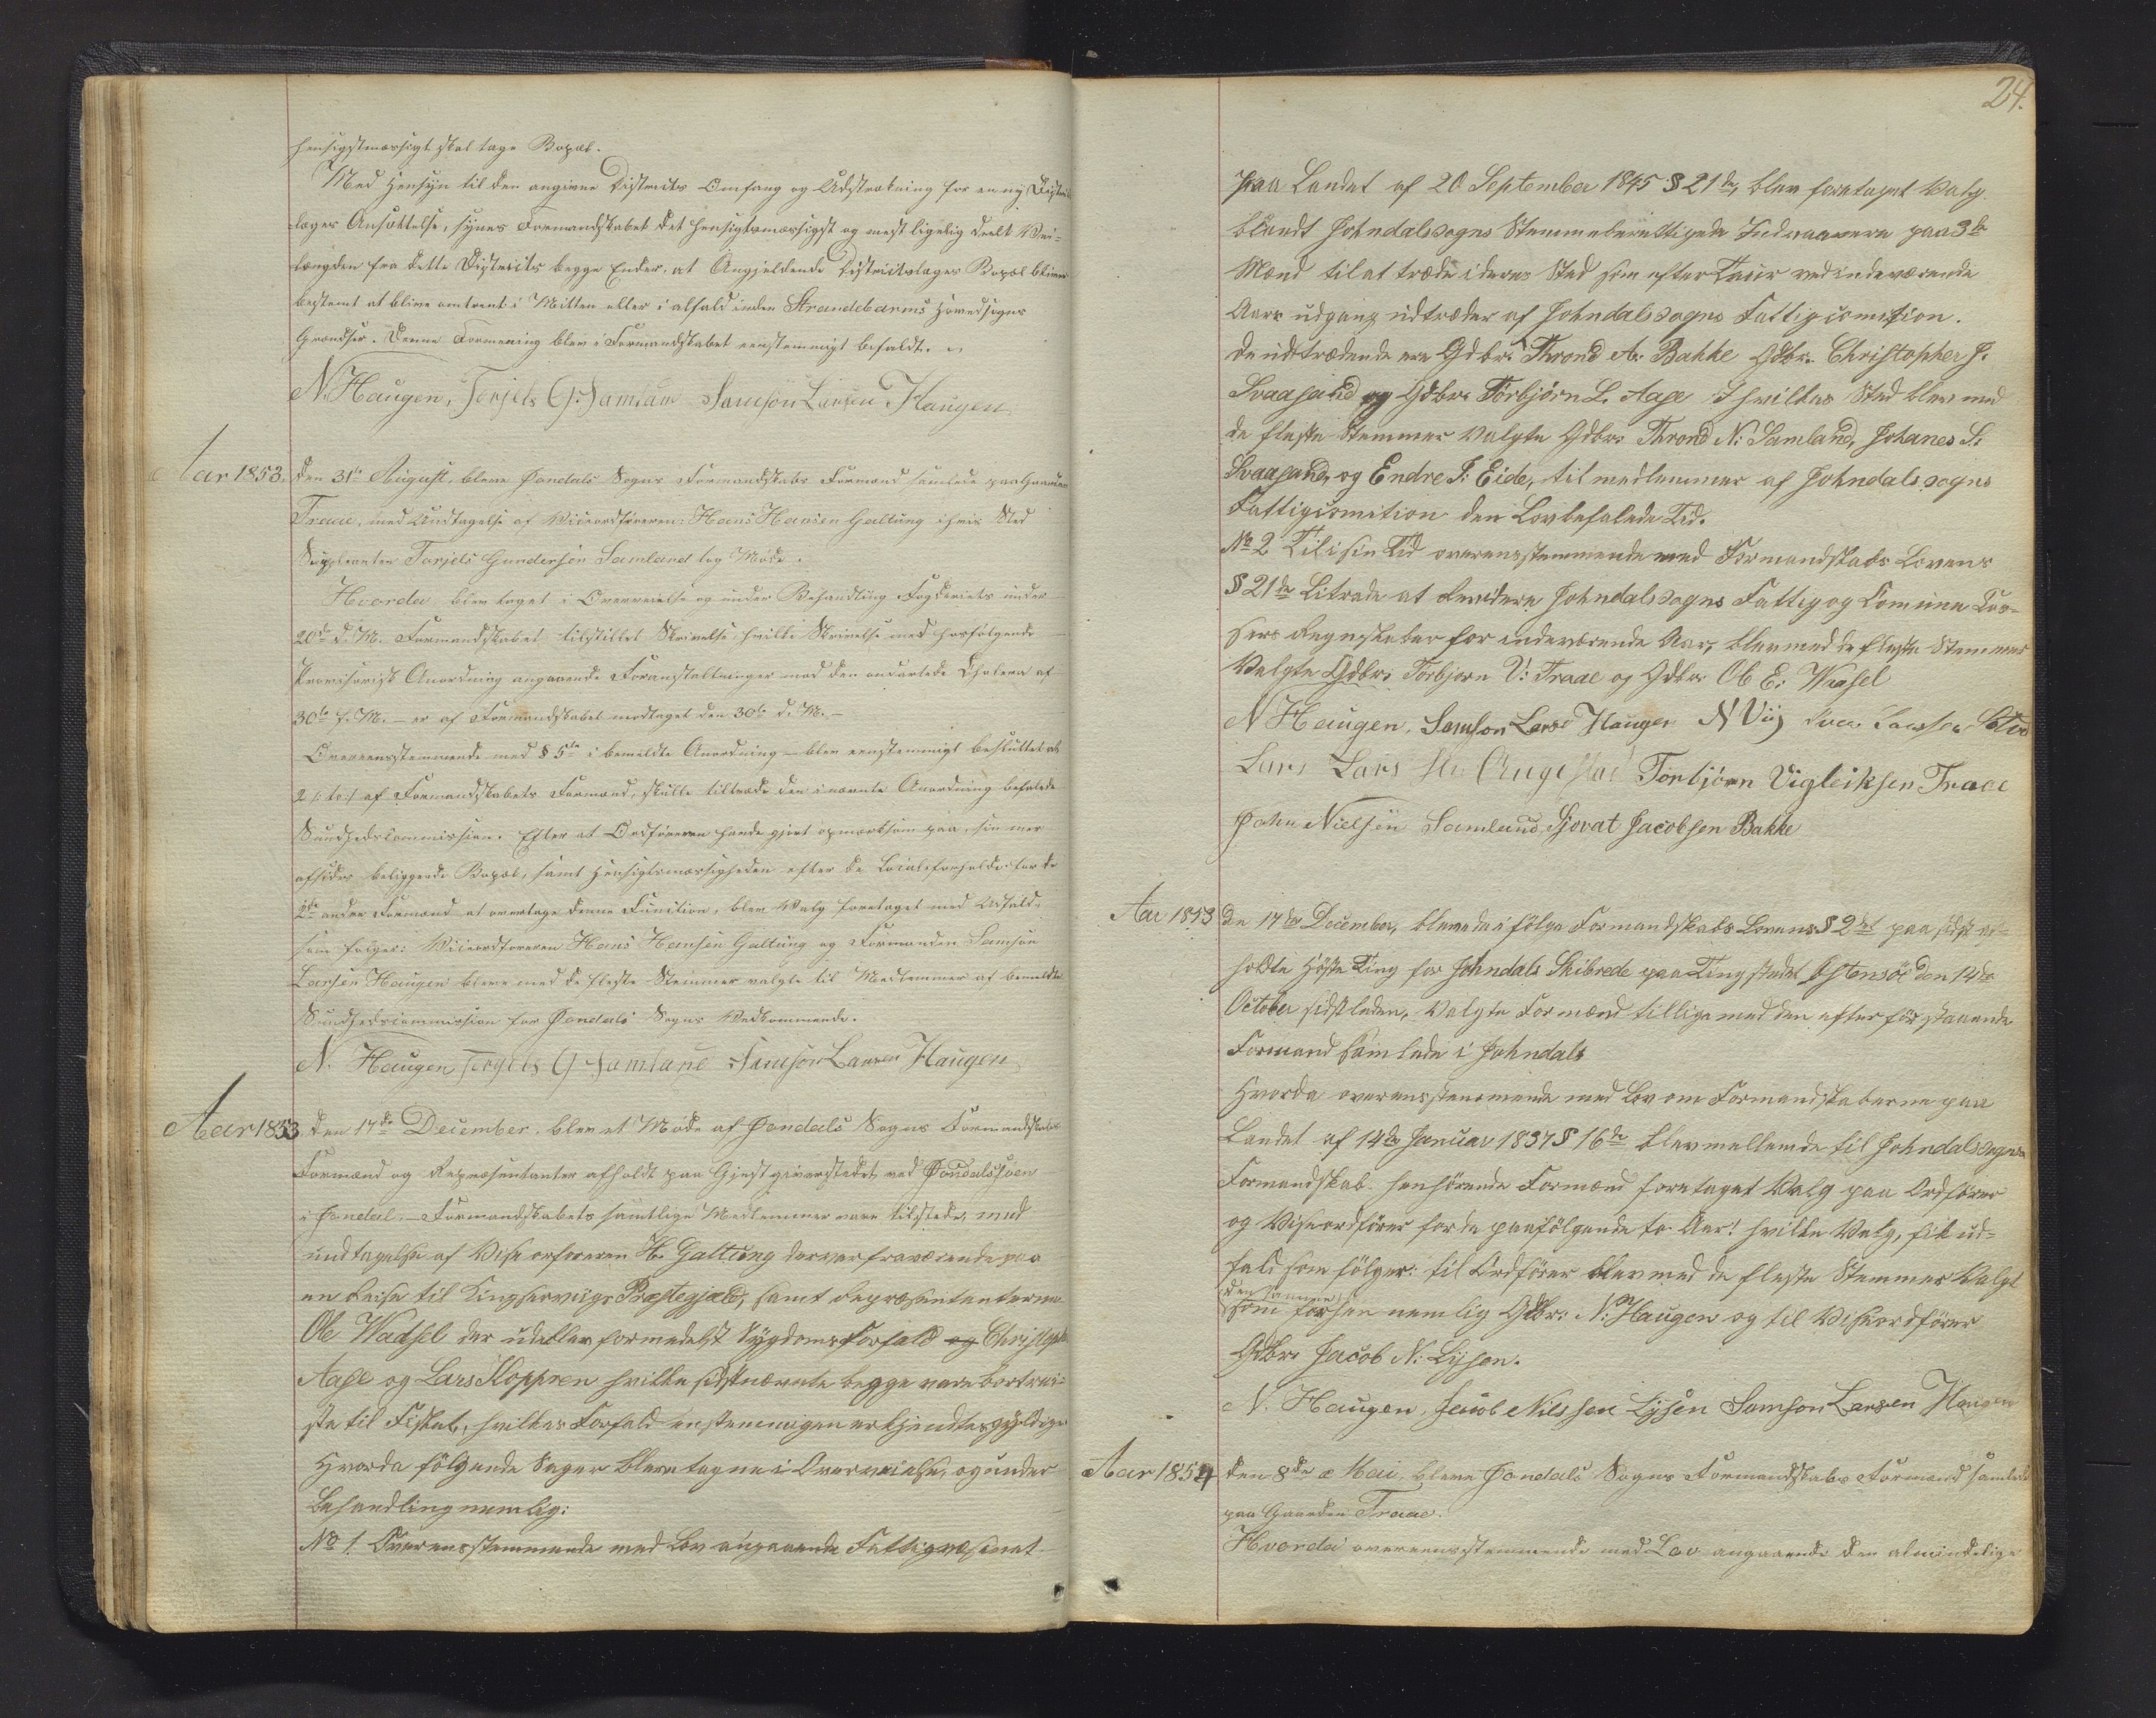 hensigtmæssigt skal tage Bopæl.
Med Hensyn til den angivne Districts Omfang og Udstrækning for en ny District
læges Ansættelse, synes Formandskabet det hensigtsmæssigst og mest ligelig deelt Vei-
længden fra dette Districts begge Ender, at Angjeldende Districtslæges Bopæl bliver
bestemt at blive omtrent i Mitten eller i alfald inden Strandebarms Hovedsogns
Grændser. Denne Formening blev i Formandskabet eenstemmigt befaldt.
N. Haugen, Torjels G: Samland Samson Larsen Haugen
Aar 1853. den 31te August, bleve Jondals Sogns Formandskabs Formænd samlede paa Gaarden
Traae, med Undtagelse af Viceordføreren: Hans Hansen Galtung i hvis Sted
Suppleanten Torjels Gundersen Samland tog Møde.
Hvorda blev taget i Overveielse og under Behandling Fogderiets under
20de d. M. Formandskabet tilstillet Skrivelse hvilke Skrivelse med hosfølgende
Provisorisk Anordning angaaende Foranstaltninger mod den ondartede Cholera af
30te f. M. – er af Formandskabet modtaget den 30te d. M. –
Overeensstemmende med § 5te i bemeldte Anordning – blev eenstemmigt besluttet at
2 /: to :/ af Formandskabets Formænd, skulle tiltræde den i nævnte Anordning befalede
Sundhedscommission. Efter at Ordføreren havde gjort opmærksom paa, sin mer
afsides beliggende Bopæl, samt Hensigtsmæssigheden efter de Localeforholde for de
2de andre Formænd at overtage denne Function, blev Valg foretaget med Udfald
som følger: Viceordføreren Hans Hansen Galtung og Formanden Samson
Larsen Haugen bleve med de fleste Stemmer valgte til Medlemmer af bemeldte
Sundhedscommission for Jondals Sogns Vedkommende.
N. Haugen Torgels G Samland Samson Larsen Haugen
Aar 1853 den 17de December, blev et Møde af Jondals Sogns Formandskabs
Formænd og Repræsentanter afholdt paa Gjestgiverstedet ved Jondalsøen
i Jondal. – Formandskabets samtlige Medlemmer vare tilstede, med
undtagelse af Viseorføreren H. Galtung der var fraværende paa
en Reise til Kingservigs Præstegjæld, samt Repræsentanterne
Ole Wadsel der udeblev formedelst Sygdoms Forfald og Christopher
Aase og Lars Kloppren hvilke sidstnævnte begge vare bortrei-
ste til Fisket, hvilkes Forfald enstemmigen erkjendtes gyldige
Hvorda følgende Sager bleve tagne i Overveielse, og under
Behandling nemlig:
No 1. Overensstemmende med Lov angaaende Fattigvæsenet
24.
paa Landet af 20 September 1845 § 21de, blev foretaget Valg
blandt Johndalssogns Stemmeberettigede Indvaanere paa 3de
Mænd til at træde i deres Sted som efter Tour ved indeværende
Aars udgang udtræder af Johndalssogns Fattigcomision.
de udtrædende ere Gdbr: Thrond A: Bakke Gdbr: Christopher J.
Svaasand og Gdbr: Torbjørn L. Aase I hvilkes Sted blev med
de fleste Stemmer Valgte Gdbr: Thrond N: Samland, Johanes S:
Svaasand, og Endre T: Eide, til medlemmer af Johndalssogns
Fattigcomition den Lovbefalede Tid.
No 2 Til i sin Tid overensstemmende med Formandskabs Lovens
§ 21de Litrade at Revidere Johndalssogns Fattig og Comune Kas-
sers Regnskaber for indeværende Aar, blev med de fleste Stemmer
Valgte Gdbr: Torbjørn V: Traae og Gdbr: Ole E: Wasel
N Haugen. Samson Larse Haugen N Viij
Lars Lars Torbjørn Vigleiksen Traae
John Nielsen Samland, Sjovat Jacobsen Bakke
Aar 1853 den 17de December, blev de i følge Formandskabs Lovens § 2det paa sidst af-
holdte Høste Ting for Johndals Skibrede paa Tingstedet Østensöe den 14de
October sidstleden, Valgte Formænd tillige med den efter før staaende
Formænd samlede i Johndals
Hvorda overensstemmende med Lov om Formandskaberne paa
Landet af 14de Januar 1837 § 16de blev mellem de til Johndalssogns
Formandskab henhørende Formænd foretaget Valg paa Ordfører
og Viseordfører for de paafølgende to Aar! hvilke Valg, fik ud-
fald som følger: til Ordfører blev med de fleste Stemmer Valgt
den samme
som forhen nemlig Gdbr: N: Haugen og til Viseordfører
Gdbr: Jacob N: Lysen.
N. Haugen, Jacob Nilssen Lysen Samson Larsen Haugen
Aar 1854 den 8de Mai, bleve Jondals Sogns Formandskabs Formænd samlede
paa Gaarden Traae.
Hvorda overeensstemmende med Lov angaaende den almindelige